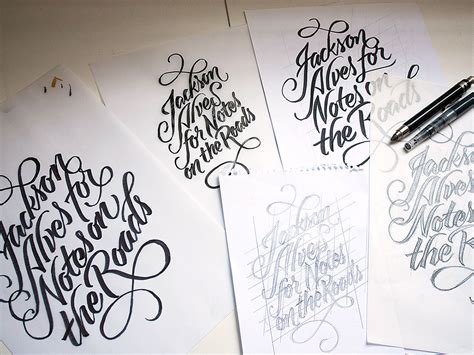 Jackson
Alves for
Notes on
the Roads
Jackson
Alves
for Notes
on the Roads
Jackson
Alves for
Notes on
the Roads
Jackson
Alves
for Notes
on the Roads
Jackson
Alves for
Notes on
the Roads